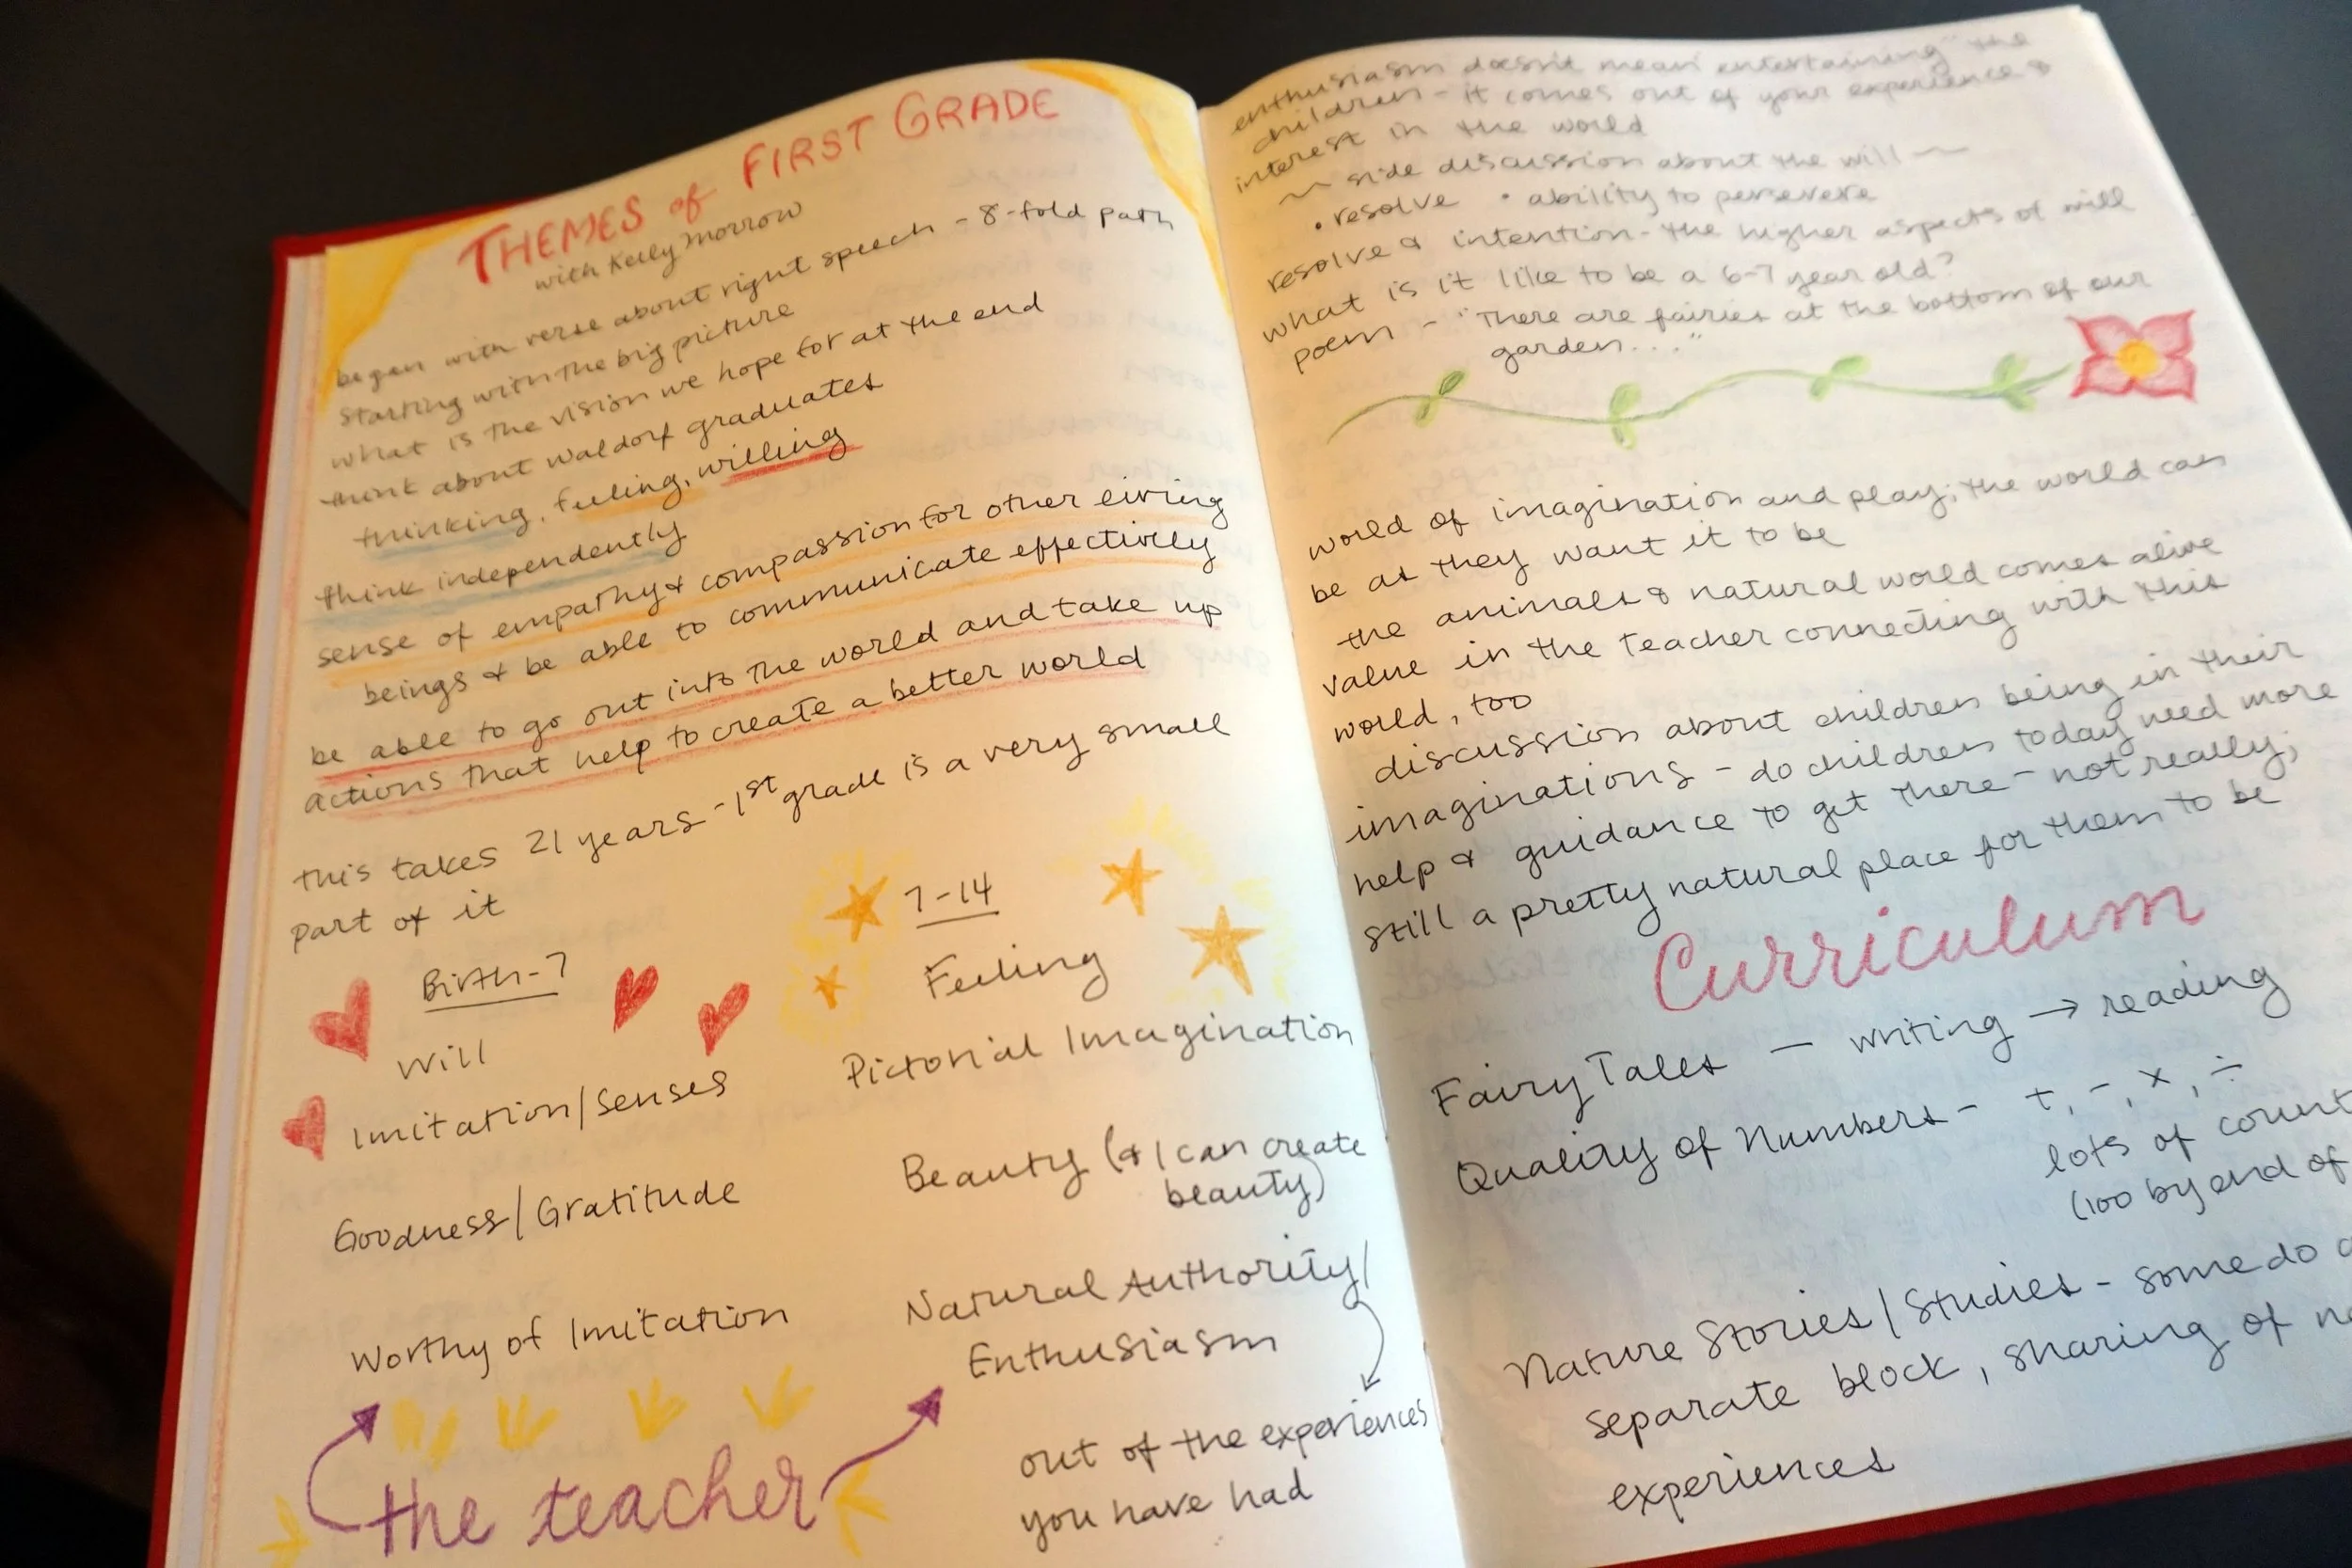 THEMES of FIRST GRADE
with Kelly Morrow
began with verse about right speech - 8-fold path
starting with the big picture
what is the vision we hope for at the end
think about waldorf graduates
thinking, feeling, willing
think independently
sense of empathy & compassion for other living
beings & be able to communicate effectively
be able to go out into the world and take up
actions that help to create a better world
this takes 21 years - 1st grade is a very small
part of it
Birth-7
Will
Imitation/Senses
Goodness/Gratitude
Worthy of Imitation
7-14
Feeling
Pictorial Imagination
Beauty (& I can create
beauty)
Natural Authority/
Enthusiasm
out of the experiences
you have had
the teacher
enthusiasm doesn't mean "entertaining" the
children - it comes out of your experience &
interest in the world
~ side discussion about the will ~
• resolve • ability to persevere
resolve & intention - the higher aspects of will
what is it like to be a 6-7 year old?
poem - "There are fairies at the bottom of our
garden..."
world of imagination and play; the world can
be as they want it to be
the animals & natural world comes alive
value in the teacher connecting with this
world, too
discussion about children being in their
imaginations - do children today need more
help & guidance to get there - not really;
still a pretty natural place for them to be
Curriculum
Fairy Tales — writing → reading
Quality of Numbers - +, -, x, ÷
lots of count
(100 by end of
Nature Stories/Studies - some do
separate block, sharing of
experiences